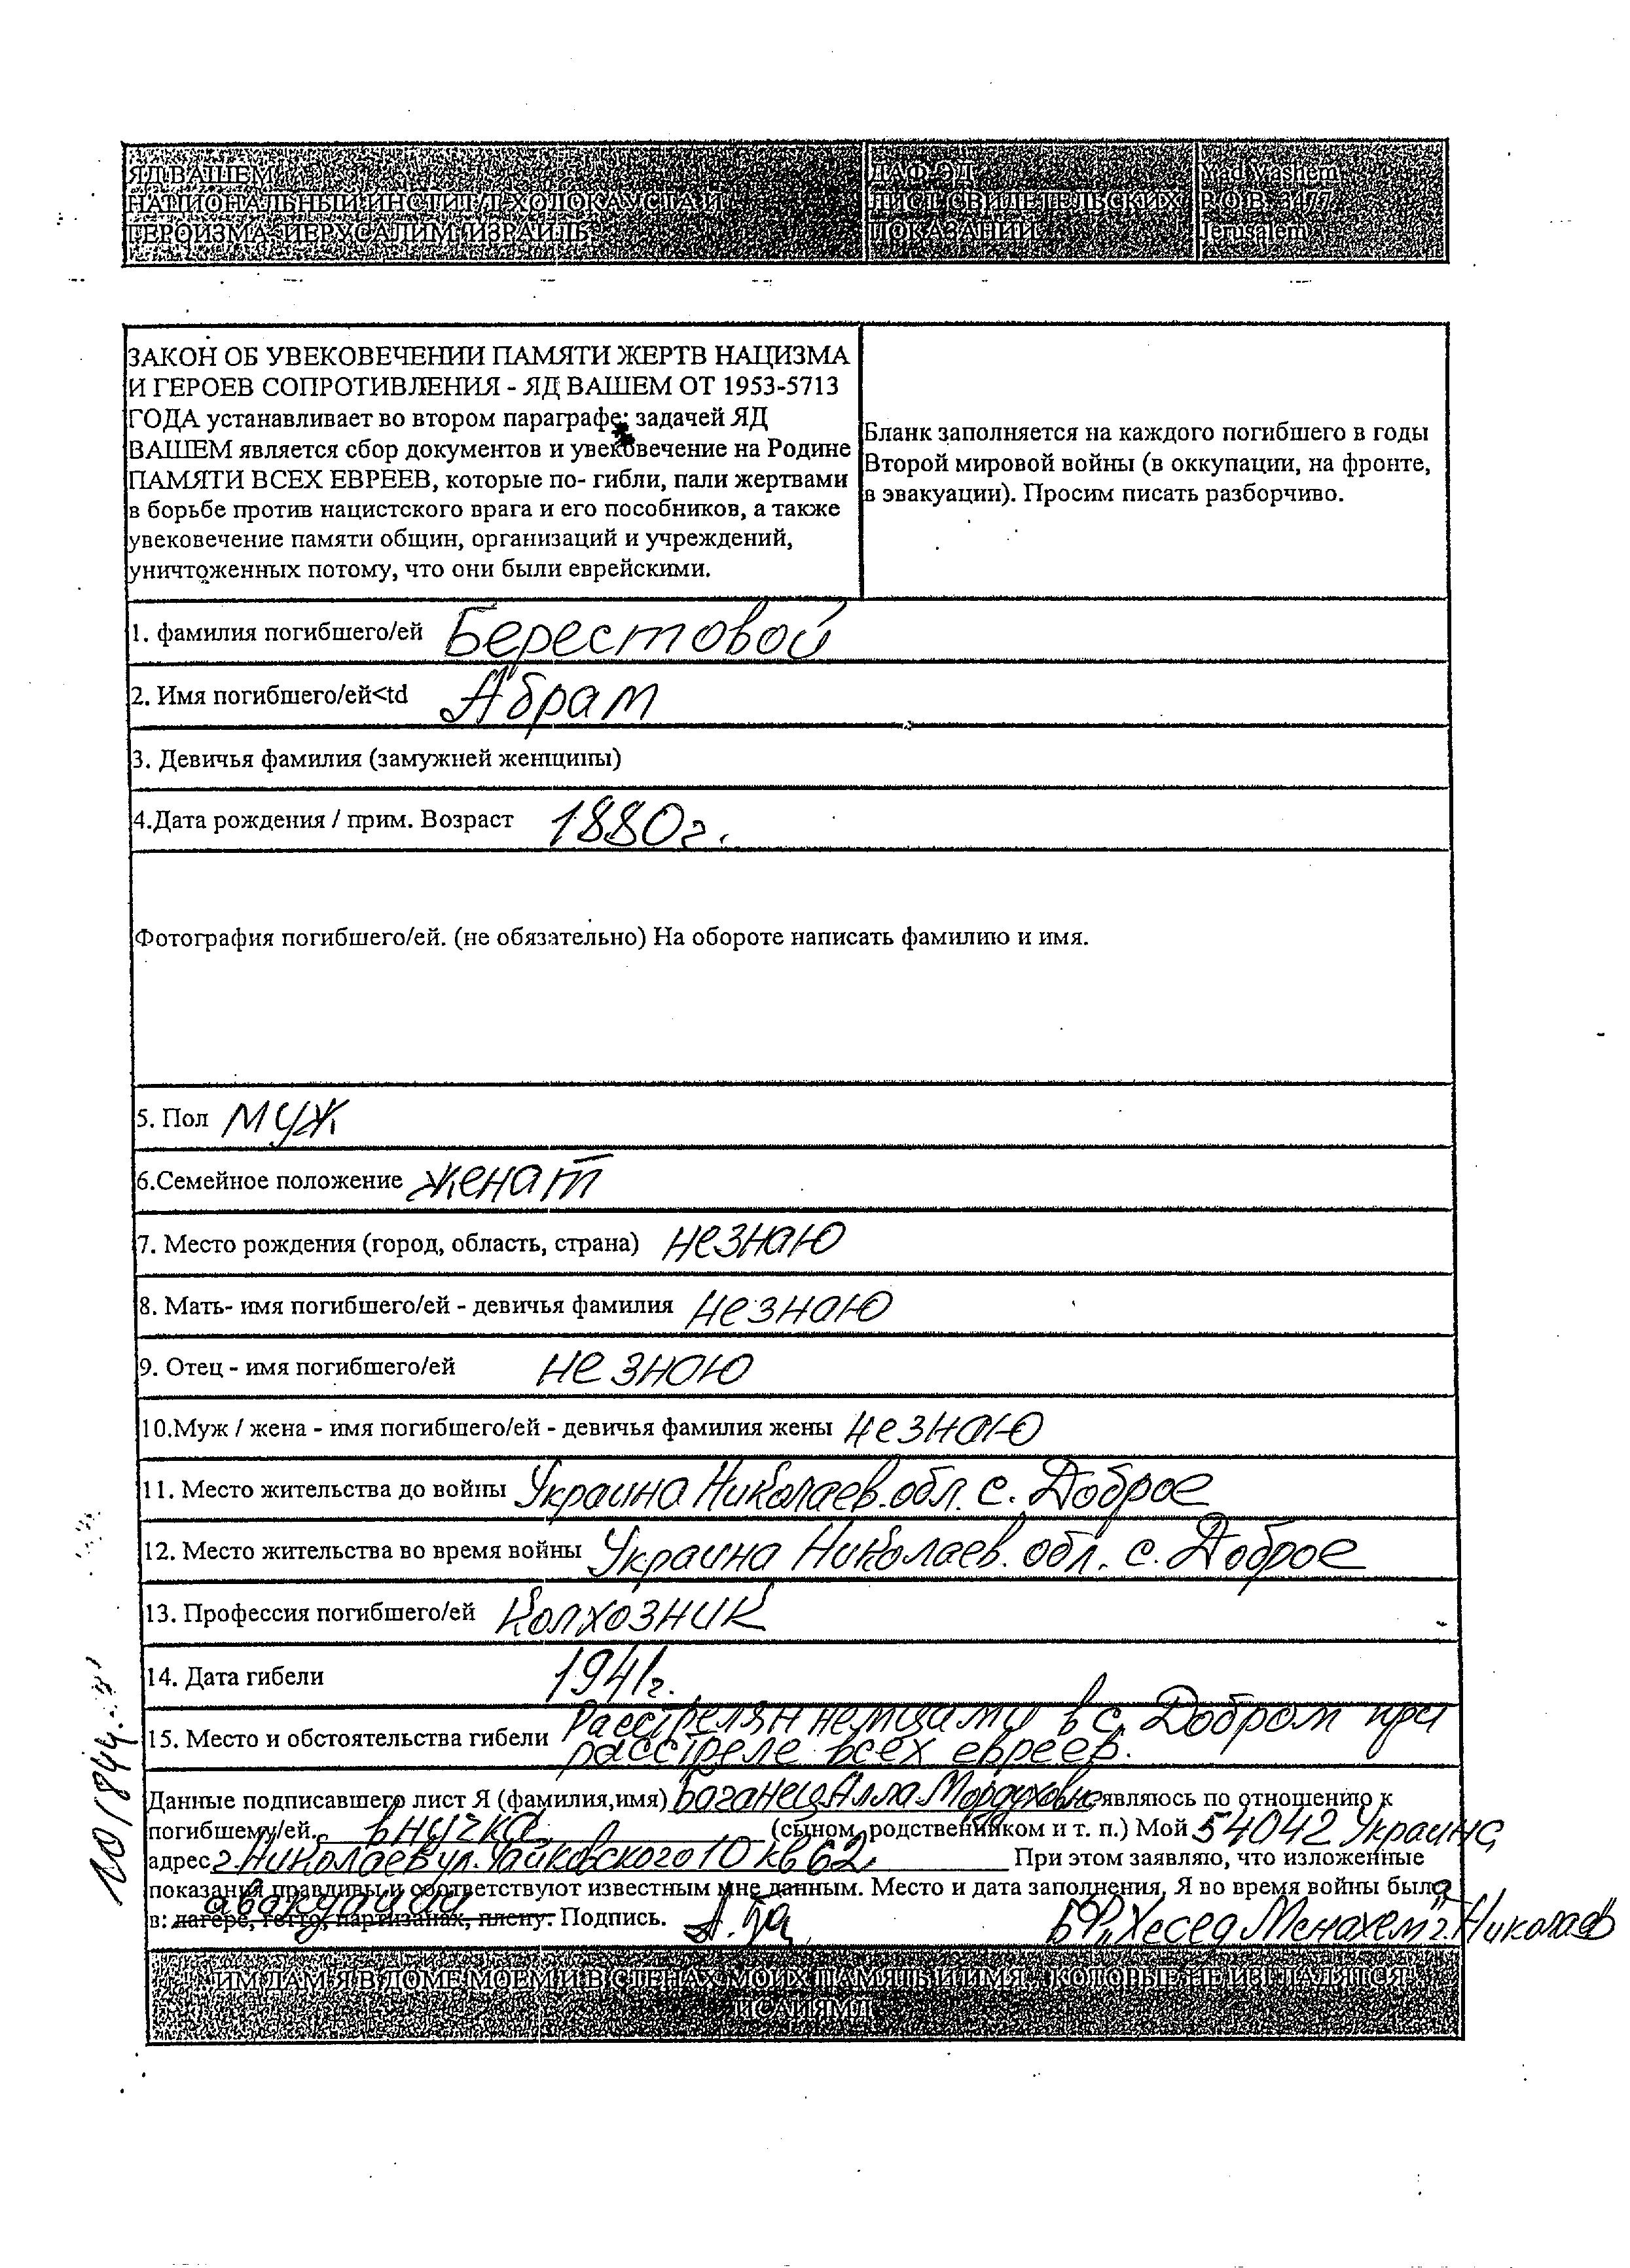 ЯД ВАШЕМ
НАЦИОНАЛЬНЫЙ ИНСТИТУТ ХОЛОКАУСТА И
ГЕРОИЗМА ИЕРУСАЛИМ ИЗРАИЛЬ
ДАФ-ЭД
ЛИСТ СВИДЕТЕЛЬСКИХ
ПОКАЗАНИЙ
Yad Vashem
P.O.B. 3477
Jerusalem
ЗАКОН ОБ УВЕКОВЕЧЕНИИ ПАМЯТИ ЖЕРТВ НАЦИЗМА
И ГЕРОЕВ СОПРОТИВЛЕНИЯ - ЯД ВАШЕМ ОТ 1953-5713
ГОДА устанавливает во втором параграфе: задачей ЯД
ВАШЕМ является сбор документов и увековечение на Родине
ПАМЯТИ ВСЕХ ЕВРЕЕВ, которые по- гибли, пали жертвами
в борьбе против нацистского врага и его пособников, а также
увековечение памяти общин, организаций и учреждений,
уничтоженных потому, что они были еврейскими.
Бланк заполняется на каждого погибшего в годы
Второй мировой войны (в оккупации, на фронте,
в эвакуации). Просим писать разборчиво.
1. фамилия погибшего/ей Берестовой
2. Имя погибшего/ей<td Абрам
3. Девичья фамилия (замужней женщины)
4.Дата рождения / прим. Возраст 1880г.
Фотография погибшего/ей. (не обязательно) На обороте написать фамилию и имя.
5. Пол муж
6.Семейное положение женат
7. Место рождения (город, область, страна) незнаю
8. Мать- имя погибшего/ей - девичья фамилия незнаю
9. Отец - имя погибшего/ей не знаю
10.Муж / жена - имя погибшего/ей - девичья фамилия жены незнаю
11. Место жительства до войны Украина Николаев. обл. с. Доброе
12. Место жительства во время войны Украина Николаев. обл. с. Доброе
13. Профессия погибшего/ей Колхозник
14. Дата гибели 1941г.
15. Место и обстоятельства гибели Расстрелян немцами в с. Добром при
расстреле всех евреев.
Данные подписавшего лист Я (фамилия,имя) Баганец Алла Мордуховна являюсь по отношению к
погибшему/ей. внучка (сыном, родственником и т. п.) Мой 54042 Украина
адрес г. Николаев ул. Чайковского 10 кв 62. При этом заявляю, что изложенные
показания правдивы и соответствуют известным мне данным. Место и дата заполнения, Я во время войны была
в: лагере, гетто, партизанах, плену. Подпись. А. Ба БФ, Хесед Менахем" г. Николаев
ИМ ДАМ Я В ДОМЕ МОЕМ И В СТЕНАХ МОИХ ПАМЯТЬ И ИМЯ...КОТОРЫЕ НЕ ИЗГЛАДЯТСЯ"
ИСАЙЯ